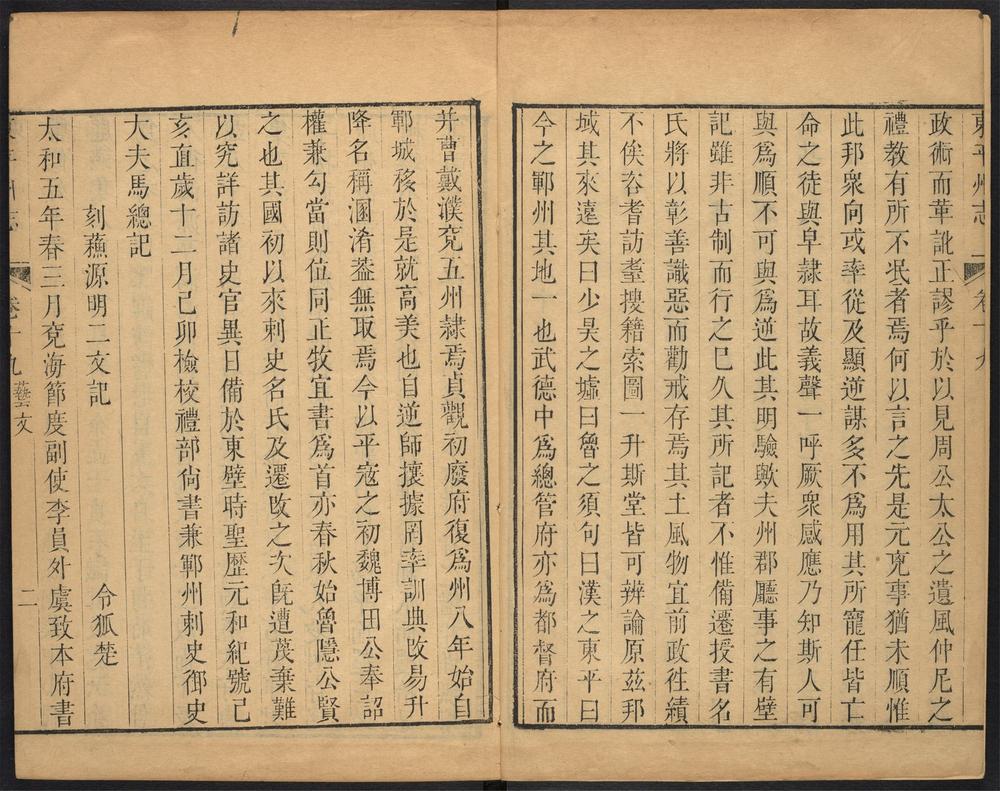 東平州志 卷十九
政術而革訛正謬乎於以見周公太公之遺風仲尼之
禮教有所不泯者焉何以言之先是元兇事猶未順惟
此邦衆向或率從及顯逆謀多不為用其所寵任皆亡
命之徒與皁隸耳故義聲一呼厥衆感應乃知斯人可
與為順不可與為逆此其明驗歟夫州郡廳事之有壁
記雖非古制而行之已久其所記者不惟備遷授書名
氏將以彰善識惡而勸戒存焉其土風物宜前政徃績
不俟咨耆訪耋搜籍索圖一升斯堂皆可辨論原茲邦
域其來遠矣曰少昊之墟曰魯之須句曰漢之東平曰
今之鄆州其地一也武德中為總管府亦為都督府而
并曹戴濮兗五州隸焉貞觀初廢府復為州八年始自
鄆城移於是就高美也自逆師攘據罔率訓典改易升
降名稱溷淆葢無取焉今以平寇之初魏博田公奉詔
權兼勾當則位同正牧宜書為首亦春秋始魯隱公賢
之也其國初以來刺史名氏及遷改之次既遭蔑棄難
以究詳訪諸史官異日備於東壁時聖歷元和紀號己
亥直歲十二月己卯檢校禮部尚書兼鄆州刺史御史
大夫馬總記
刻蘓源明二文記 令狐楚
太和五年春三月兗海節度副使李員外虞致本府書
卷十九 藝文 二